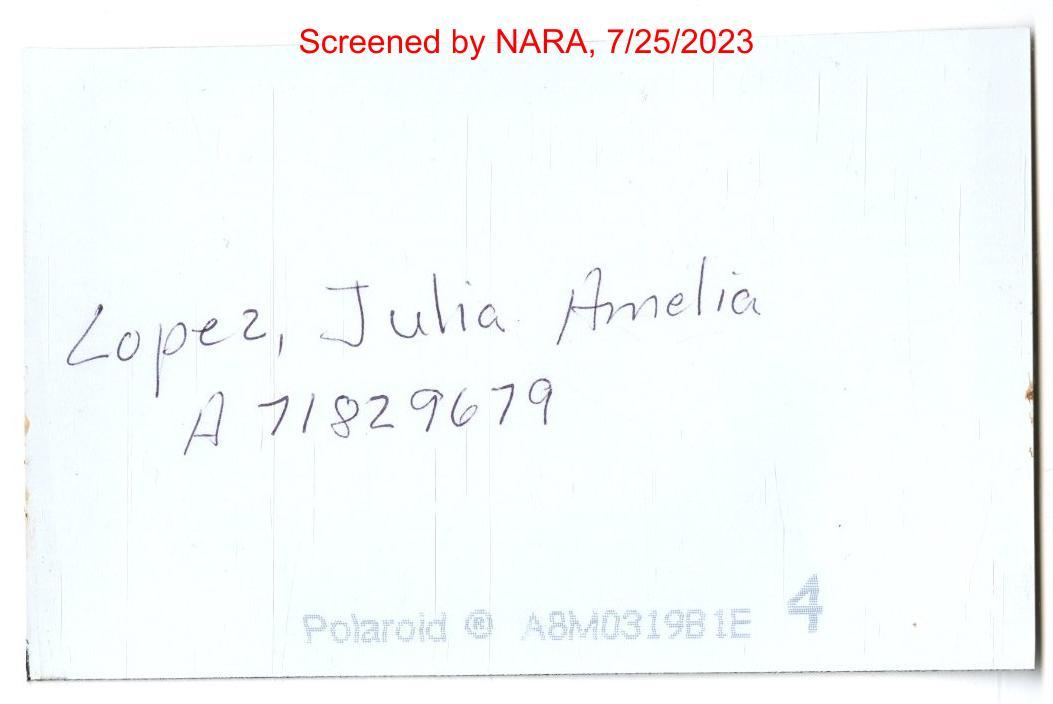 Screened by NARA, 7/25/2023
Lopez, Julia Amelia
A 71829679
Polaroid ® A8M0319B1E 4